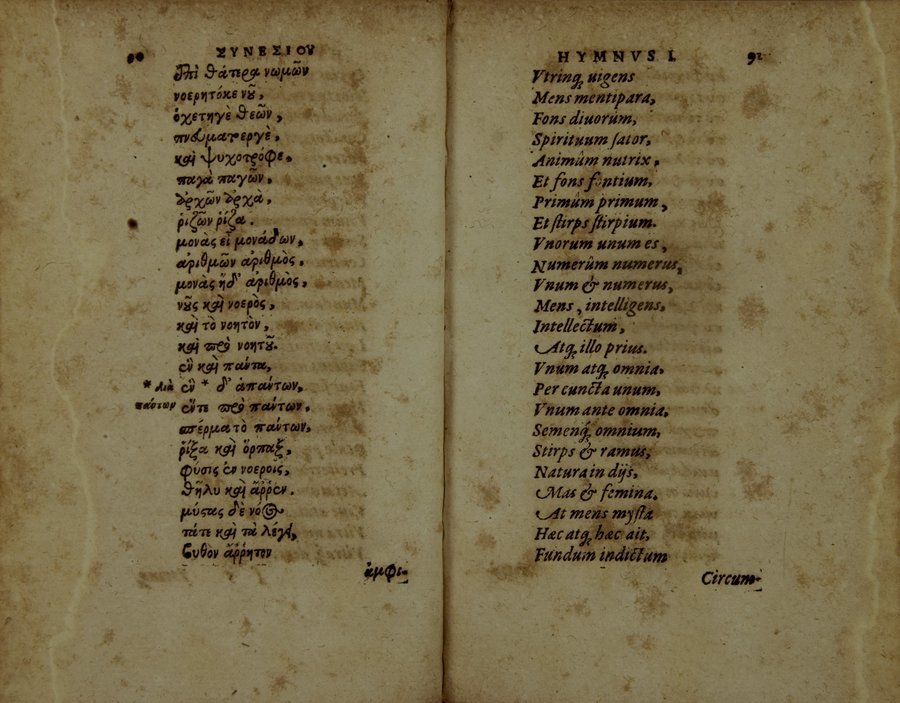 90 ΣΥΝΕΣΙΟΥ
ἐπὶ θάτερα νωμῶν
νοερητόκε νῦ,
ὀχετηγὲ θεῶν,
πνευματεργὲ,
καὶ ψυχοτρόφε,
παγὰ παγῶν,
ἀρχῶν ἀρχὰ,
ῥιζῶν ῥίζα.
μονὰς εἶ μονάδων,
ἀριθμῶν ἀριθμὸς,
μονὰς ἠδ' ἀριθμὸς,
νῦς καὶ νοερὸς,
καὶ τὸ νοητὸν,
καὶ πρὸ νοητῦ.
ἓν καὶ πάντα,
* διὰ πάντων
ἓν * δ' ἁπάντων,
ἕντε πρὸ πάντων.
σπέρμα τὸ πάντων,
ῥίζα καὶ ὄρπαξ,
φύσις ἐν νοεροῖς,
θῆλυ καὶ ἄῤῥεν.
μύστας δὲ νόος
τάτε καὶ τὰ λέγει,
βυθὸν ἄῤῥητον
ἀμφι-
HYMNVS I. 91
Vtrinq; uigens
Mens mentipara,
Fons diuorum,
Spirituum sator,
Animûm nutrix,
Et fons fontium,
Primûm primum,
Et stirps stirpium.
Vnorum unum es,
Numerûm numerus,
Vnum & numerus,
Mens, intelligens,
Intellectum,
Atq; illo prius.
Vnum atq; omnia,
Per cuncta unum,
Vnum ante omnia,
Semenq́; omnium,
Stirps & ramus,
Natura in dijs,
Mas & femina.
At mens mysta
Hæc atq; hæc ait,
Fundum indictum
Circum-